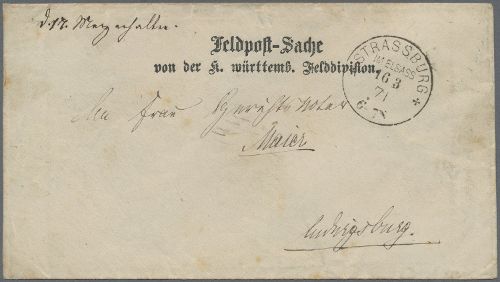 d. 17. Merz erhalten.
Feldpost-Sache
von der K. württemb. Felddivision
STRASSBURG
IM ELSASS
16 3
71
6-7N
An Frau Gerichtsnotar
Maier
Ludwigsburg.